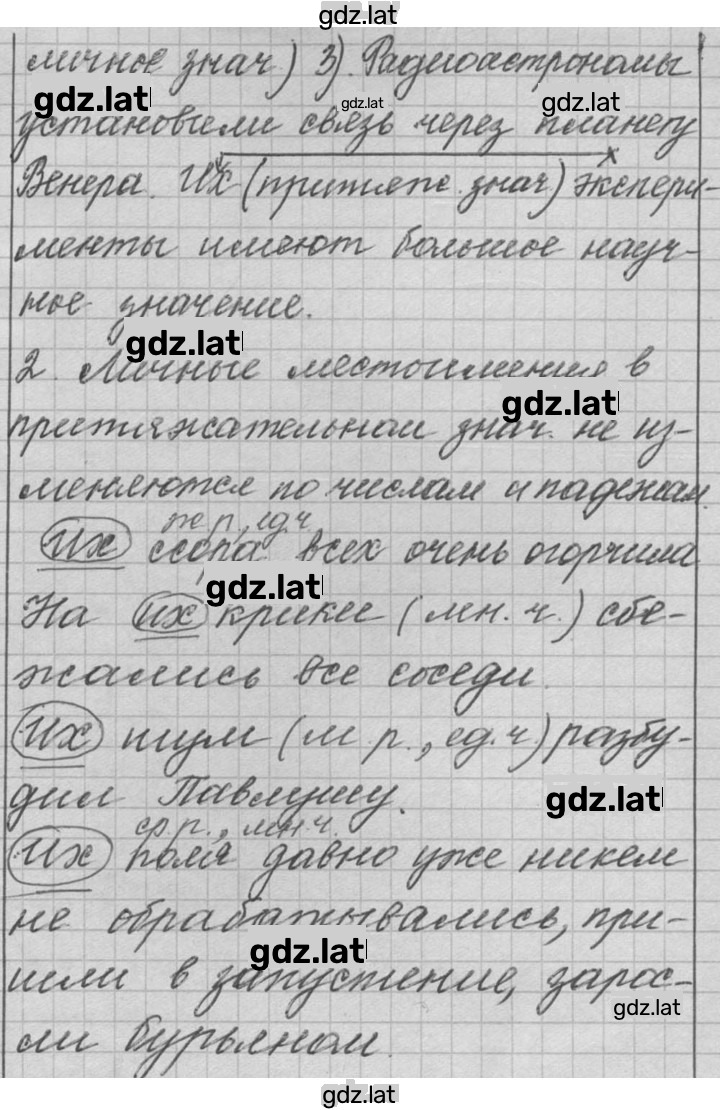 gdz.lat
личное знач) 3). Радиоастрономы
gdz.lat gdz.lat gdz.lat
установили связь через планету
Венера. Их (притяже. знач.) экспери-
менты имеют большое науч-
ное значение.
gdz.lat
2. Личные местоимения в
gdz.lat
притяжательном знач. не из-
меняются по числам и падежам.
же р., ед.ч.
Их ссора всех очень огорчила
gdz.lat
На их крики (мн. ч.) сбе-
жались все соседи.
Их шум (м.р., ед.ч) разбу-
дил Павлушу.
gdz.lat
ср.р., мн.ч.
Их поля давно уже никем
не обрабатывались, при-
gdz.lat
шли в запустение, зарос-
gdz.lat
ли бурьяном.
gdz.lat